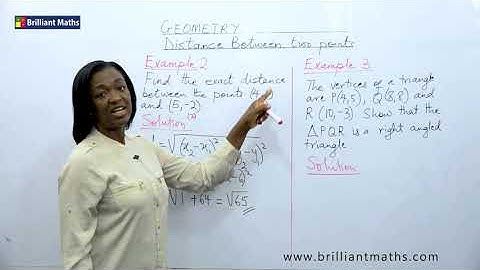 Brilliant Maths
GEOMETRY
Distance Between two points
Example 2
Find the exact distance
between the points (4,
and (5,-2)
Solution
= √(x₂-x₁)²
-y)²
√1 + 64 = √65
Example 3
The vertices of a triangle
are P(4,5), Q(8,8) and
R (10,-3) Show that the
△PQR is a right angled
triangle
Solution
www.brilliantmaths.com